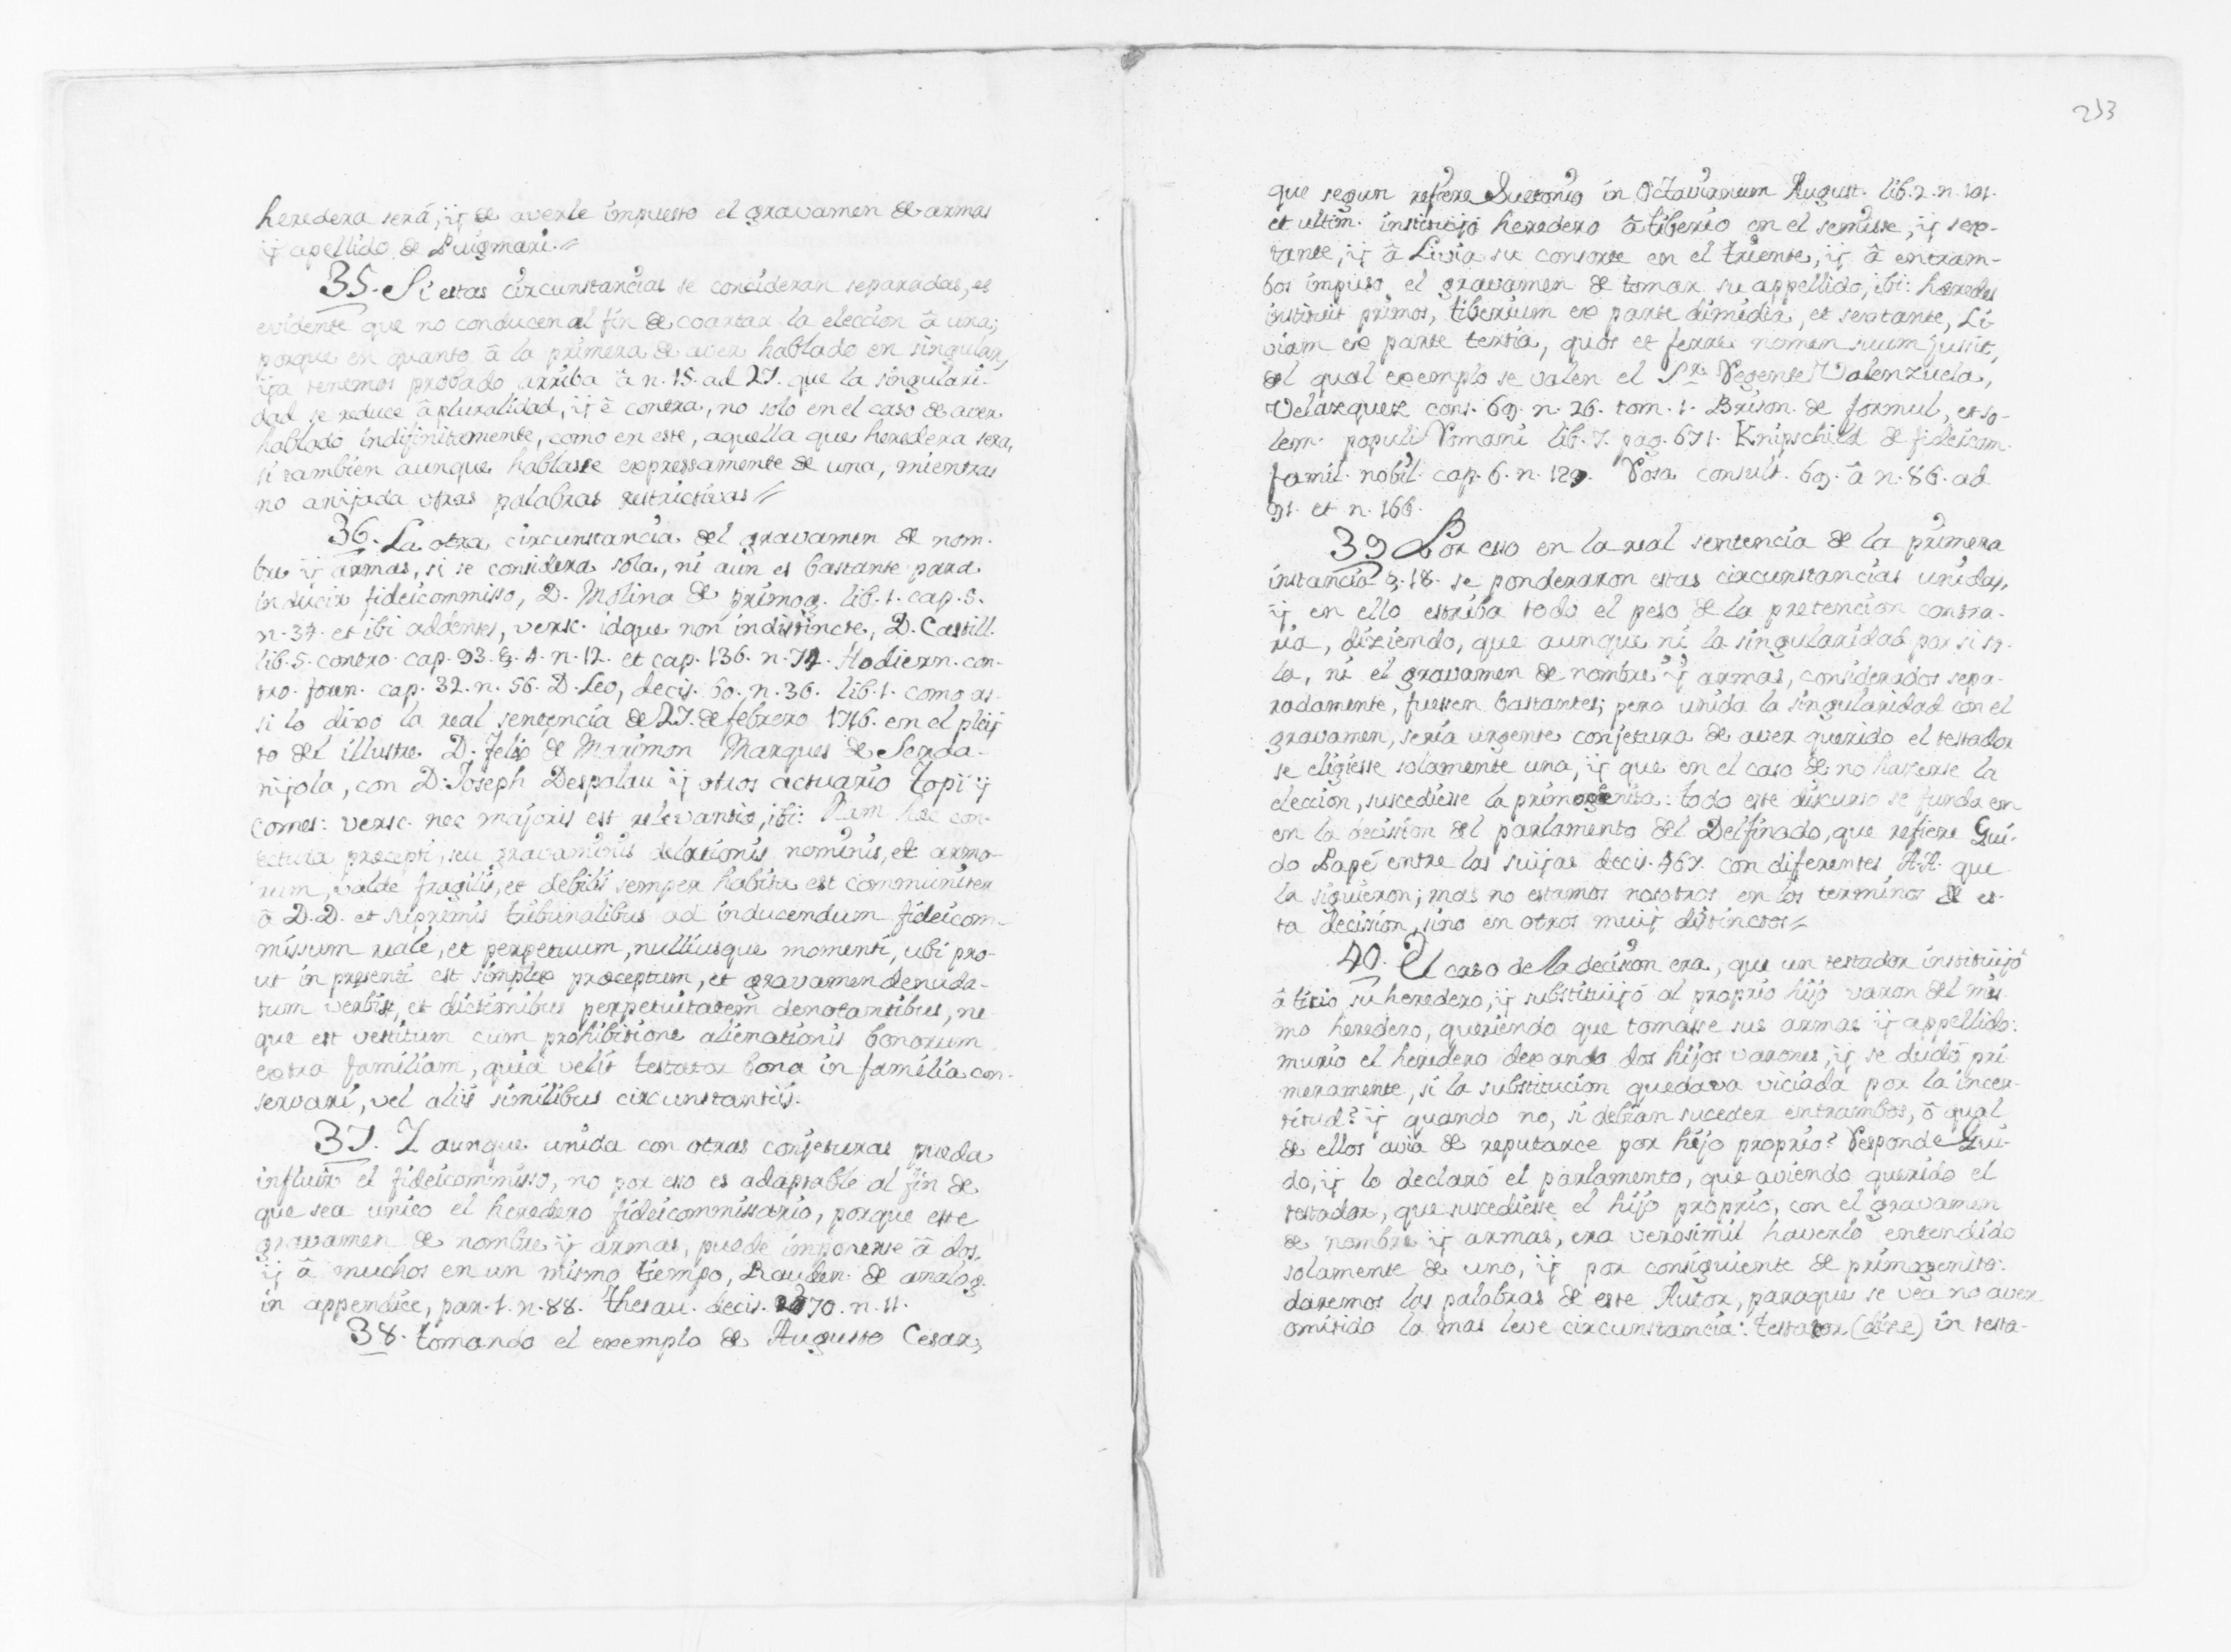 heredera será, ÿ de averle impuesto el gravamen de armas
ÿ apellido de Puigmari.//
35. Si estas circunstancias se concideran separadas, es
evidente que no conducen al fin de coartar la eleccion â una;
porque en quanto â la primera de aver hablado en singular,
ÿa tenemos probado arriba â n. 15. ad 27. que la singulari-
dad se reduce â pluralidad, ÿ ê contra, no solo en el caso de aver
hablado indifinitamente, como en este, aquella que heredera sera,
si tambien aunque hablasse expressamente de una, mientras
no anÿada otras palabras restrictivas//
36. La otra circunstancia del gravamen de nom-
bre ÿ armas, si se considera sola, ni aun es bastante para
inducir fideicommisso, D. Molina de primog. lib. 1. cap. 5.
n. 37. et ibi addentes, versc. idque non indistincte, D. Castill.
lib. 5. contro. cap. 93. §. 4. n. 12. et cap. 136. n. 74. Hodiern. con-
tro. foren. cap. 32. n. 56. D. Leo, decis. 60. n. 36. lib. 1. como as-
si lo dixo la real sentencia de 27. de febrero 1716. en el pleÿ-
to del illustre D. Felix de Marimon Marques de Serda-
ñjola, con D. Joseph Despalau ÿ otros actuario Topi ÿ
Comes: versc. nec majoris est relevantia, ibi: Nam hæc con-
iectura præcepti, seu gravaminis delationis nominis, et armo-
rum, valde fragilis, et debilis semper habita est communiter
â D.D. et supremis tribunalibus ad inducendum fideicom-
missum reale, et perpetuum, nulliusque momenti, ubi pro-
ut in presenti est simplex præceptum, et gravamen denuda-
tum verbis, et dictionibus perpetuitatem denotantibus, ne-
que est vestitum cum prohibitione alienationis bonorum
extra familiam, quia velit testator bona in familia con-
servari, vel aliis similibus circunstantiis.
37. Y aunque unida con otras conjeturas pueda
influir el fideicommisso, no por esso es adaptable al fin de
que sea unico el heredero fideicommissario, porque este
gravamen de nombre ÿ armas, puede imponerse â dos,
ÿ â muchos en un mismo tiempo, Rauden. de analog.
in appendice, par. 1. n. 88. Thesau. decis. 270. n. 11.
38. tomando el exemplo de Augusto Cesar,
233
que segun refiere Suetonio in Octavianum August. lib. 2. n. 101.
et ultim. instituÿó heredero â tiberio en el semisse, ÿ sex-
tante, ÿ â Livia su consorte en el triente, ÿ â entram-
bos impuso el gravamen de tomar su appellido, ibi: hæredes
instituit primos, tiberium ex parte dimidia, et sextante, Li-
viam ex parte tertia, quos et ferre nomen suum jussit,
del qual exemplo se valen el Sr. Regente Valenzuela,
Velazquez cons. 69. n. 26. tom. 1. Brison. de formul, et so-
lem. populi Romani lib. 7. pag. 671. Knipschild de fideicom.
famil. nobil. cap. 6. n. 129. Rosa consult. 69. â n. 86. ad
91. et n. 166.
39 Por esso en la real sentencia de la primera
instancia §. 18. se ponderaron estas circunstancias unidas,
ÿ en ello estriba todo el peso de la pretencion contra-
ria, diziendo, que aunque ni la singularidad por si so-
la, ni el gravamen de nombre ÿ armas, considerados sepa-
radamente, fuessen bastantes; pero unida la singularidad con el
gravamen, seria urgente conjetura de aver querido el testador
se eligiesse solamente una, ÿ que en el caso de no hazerse la
eleccion, suscediesse la primogenita: todo este discurso se funda en
en la decission del parlamento del Delfinado, que refiere Gui-
do Papé entre las suÿas decis. 467. con diferentes A.A. que
la siguieron; mas no estamos nosotros en los terminos de es-
ta decision, sino en otros muÿ distinctos//
40. El caso de la decision era, que un testador instituÿó
â ticio su heredero, ÿ substituÿó al proprio hijo varon del mis-
mo heredero, queriendo que tomasse sus armas ÿ appellido:
murio el heredero dexando dos hijos varones, ÿ se dudó pri-
meramente, si la substitucion quedava viciada por la incer-
titud? ÿ quando no, si debian suceder entrambos, ô qual
de ellos avia de reputarce por hijo proprio? Responde Gui-
do, ÿ lo declaró el parlamento, que aviendo querido el
testador, que suscediesse el hijo proprio, con el gravamen
de nombre ÿ armas, era verosimil haverlo entendido
solamente de uno, ÿ por consiguiente de primogenito:
daremos las palabras de este Autor, paraque se vea no aver
omitido la mas leve circunstancia: testator (dice) in testa-